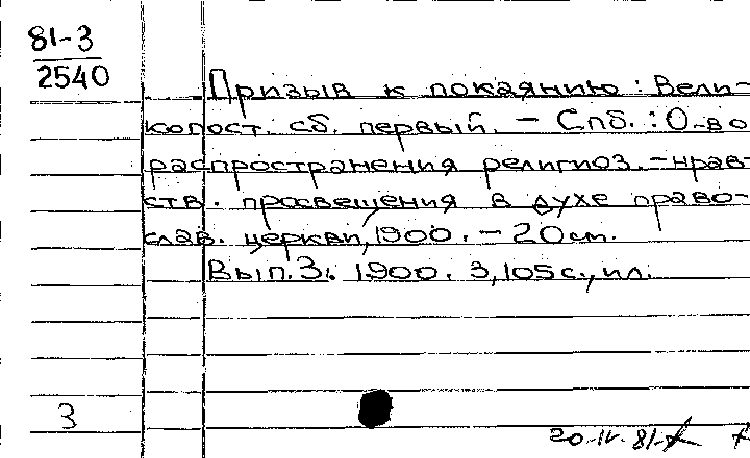 81-3
2540
Призыв к покаянию : Вели-
копост. сб. первый. – Спб. : О-во
распространения религиоз.-нрав-
ств. просвещения в духе право-
слав. церкви, 1900. – 20 см.
Вып. 3. 1900. 3, 105 с., ил.
3
20.IV.81